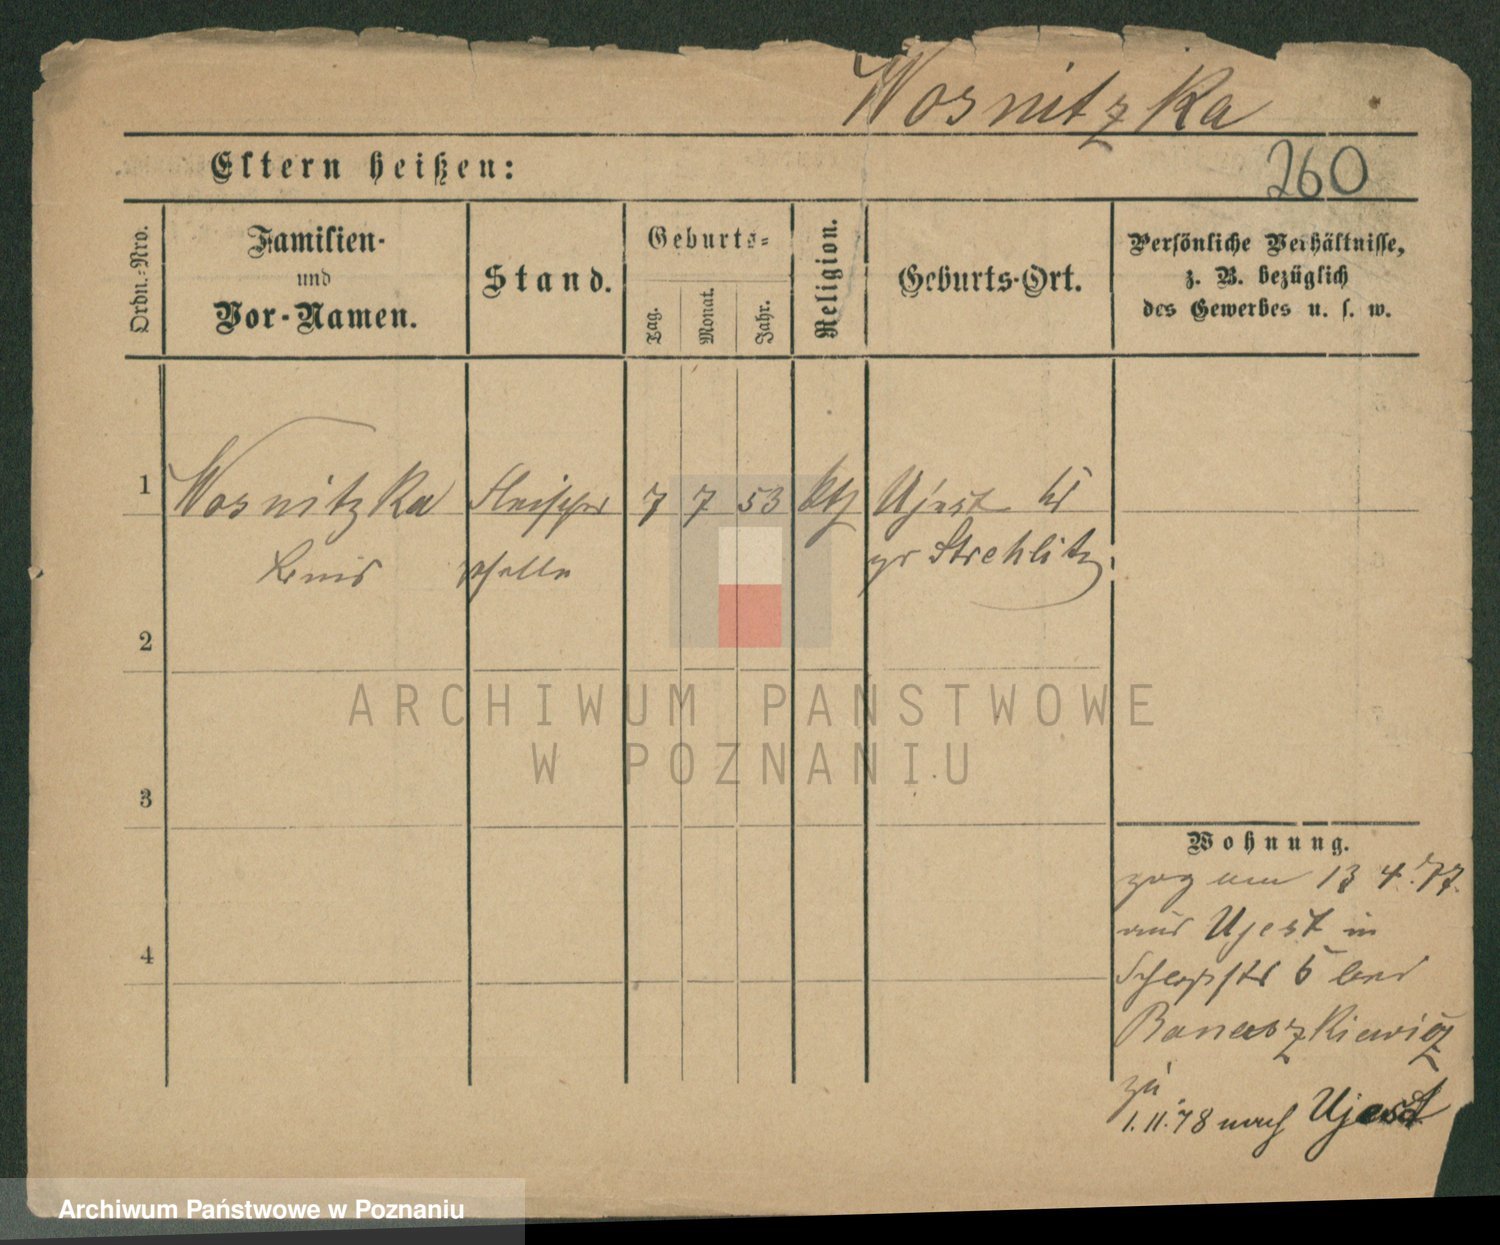 Wosnitzka
Eltern heißen:
260
Ordn.-Nro.
Familien-
und
Vor-Namen.
Stand.
Geburts-
Tag.
Monat.
Jahr.
Religion.
Geburts-Ort.
Persönliche Verhältnisse,
z. B. bezüglich
des Gewerbes u. s. w.
1
Wosnitzka
Louis
Fleischer
gselle
7 7 53
kth
Ujest Kr
gr Strehlitz
2
3
4
Wohnung.
zog am 13 4. 77.
aus Ujest in
5
Banaszkiewicz
zu
1. 11. 78 nach Ujest
ARCHIWUM PAŃSTWOWE
W POZNANIU
Archiwum Państwowe w Poznaniu